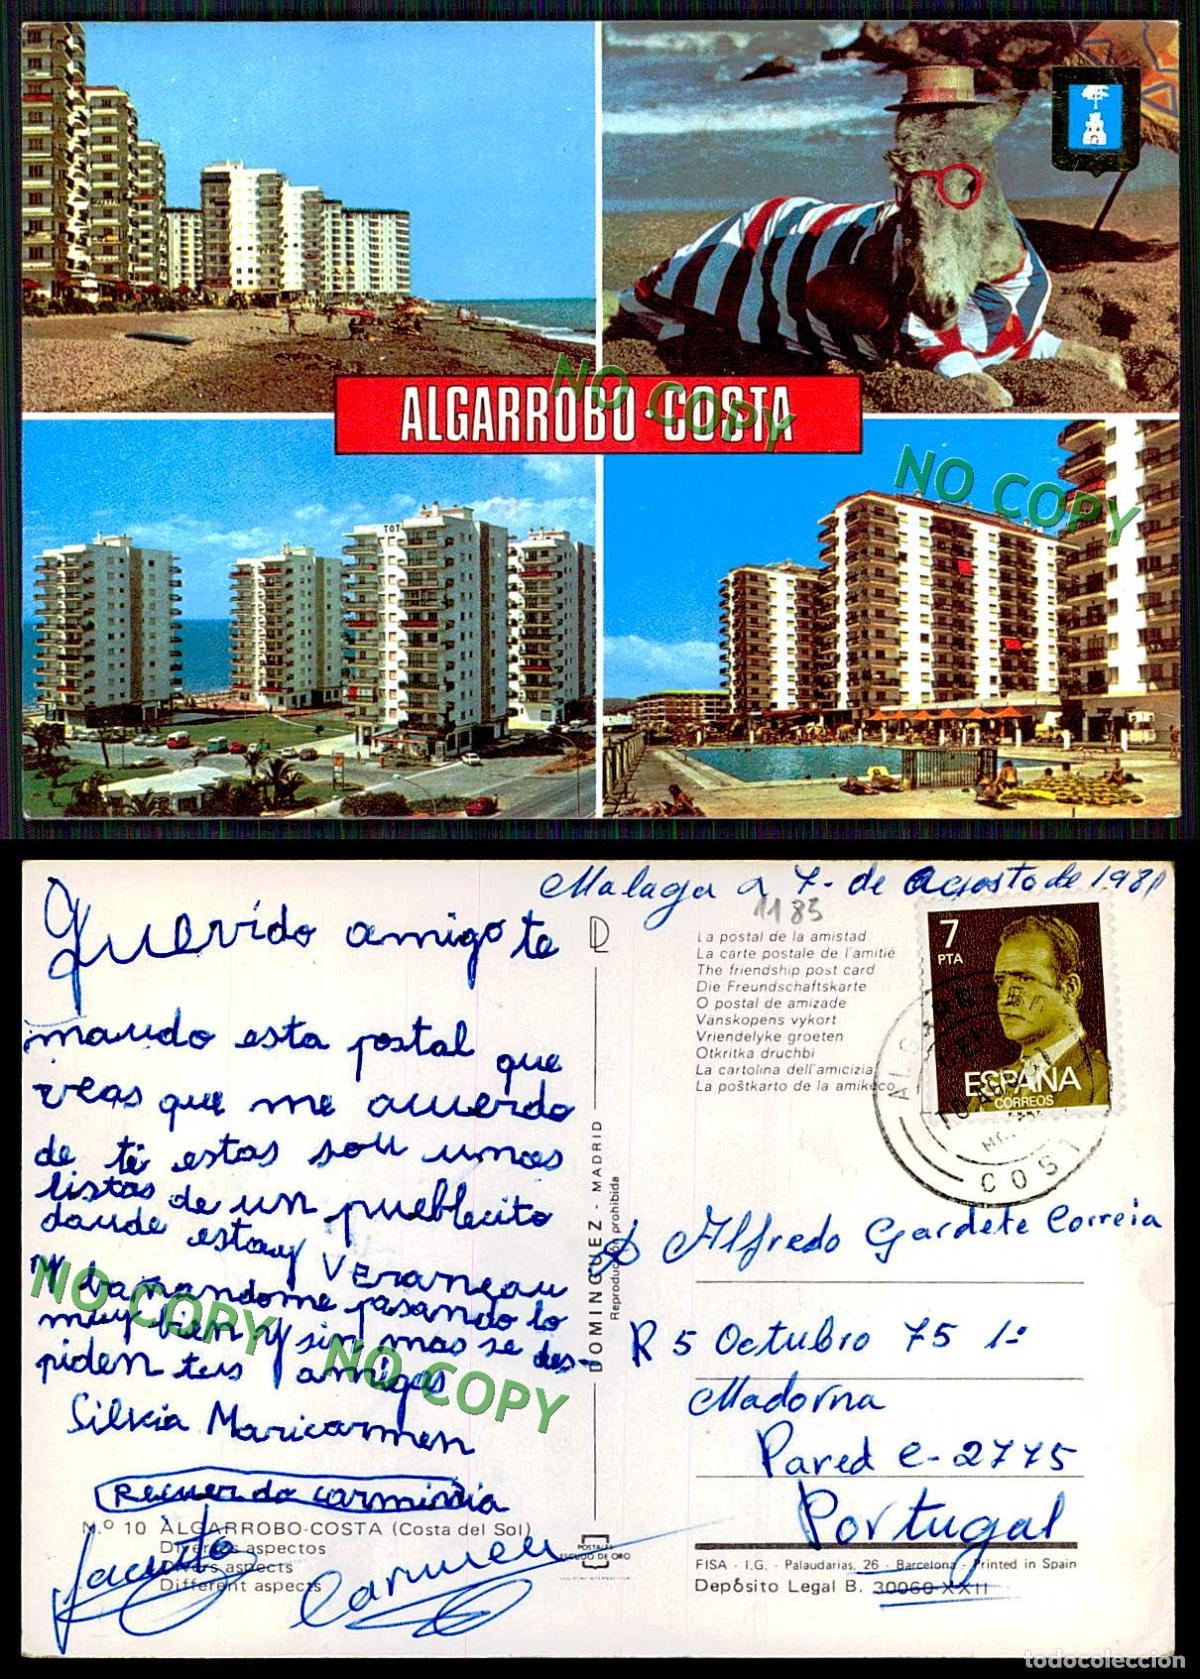 ALGARROBO-COSTA
NO COPY
NO COPY
TOT
Malaga a 7- de agosto de 1981
1185
Querido amigo te
mando esta postal que
veas que me acuerdo
de ti estas son unas
listas de un pueblecito
daude estoy veraneau
y bañandome pasando lo
muy bien y sin mas se des-
piden tus amigas
Silvia Maricarmen
Recuerdo carminia
Jacinto
Carmen
NO COPY
NO COPY
N.º 10 ALGARROBO-COSTA (Costa del Sol)
Diversos aspectos
Divers aspects
Different aspects
DOMINGUEZ - MADRID
Reproducción prohibida
POSTALES
ESCUDO DE ORO
La postal de la amistad
La carte postale de l'amitié
The friendship post card
Die Freundschaftskarte
O postal de amizade
Vanskopens vykort
Vriendelyke groeten
Otkritka druchbi
La cartolina dell'amicizia
La poŝtkarto de la amikeco
7
PTA
ESPAÑA
CORREOS
COST
Alfredo Gardete Correia
R 5 Octubro 75 1º
Madorna
Pared e- 2775
Portugal
FISA - I.G. - Palaudarias, 26 - Barcelona - Printed in Spain
Depósito Legal B. 30060-XXII
todocoleccion